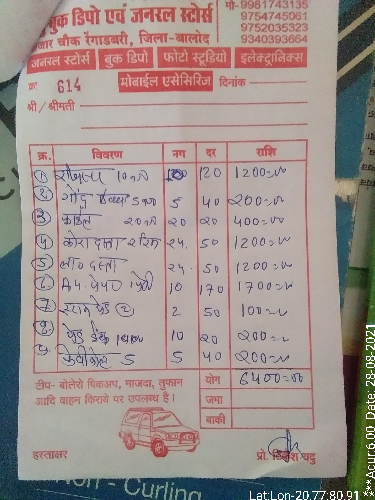 बुक डिपो एवं जनरल स्टोर्स
मो- 9981743135
9754745061
9752035323
9340393664
जार चौक रेंगाडबरी, जिला-बालोद
जनरल स्टोर्स बुक डिपो फोटो स्टूडियो इलेक्ट्रानिक्स
क्र 614 मोबाईल एसेसिरिज दिनांक
श्री / श्रीमती
क्र. विवरण नग दर राशि
① 10 120 1200=00
② गोंद 5 40 200=00
③ फाईल 20 20 400=00
④ कोरा दस्ता 24 50 1200=00
⑤ दस्ता 24 50 1200=00
⑥ A4 पेपर 10 170 1700=00
⑦ स्टाम्प पेड ② 2 50 100=00
8 10 20 200=00
9 फेवीकोल 5 5 40 200=00
टीप- बोलेरो पिकअप, माजदा, तुफान
आदि वाहन किराये पर उपलब्ध है।
योग 6400=00
जमा
बाकी
हस्ताक्षर
प्रो. यदु
On - Curling
Lat:Lon-20.77:80.91
***Acur:6.00 Date: 28-08-2021